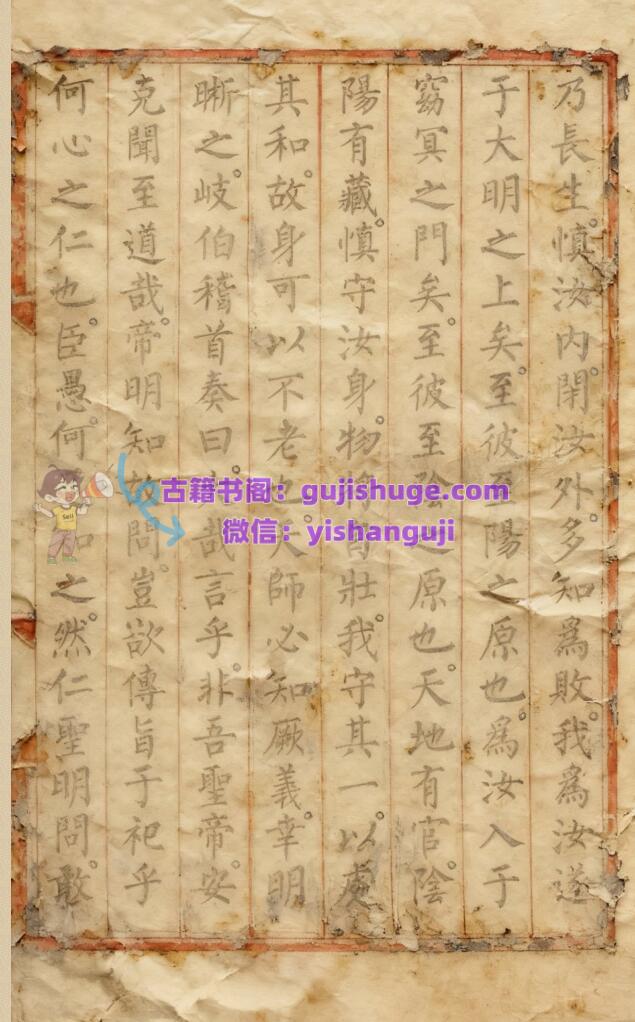 乃長生。慎汝内。閉汝外。多知爲敗。我爲汝遂
于大明之上矣。至彼至陽之原也。爲汝入于
窈冥之門矣。至彼至陰之原也。天地有官。陰
陽有藏。慎守汝身。物將自壯。我守其一。以處
其和。故身可以不老天師必知厥義。幸明
晰之。岐伯稽首奏曰。哉言乎。非吾聖帝安
克聞至道哉。帝明知故問。豈欲傳旨于祀乎
何心之仁也。臣愚何知之。然仁聖明問。敢
古籍书阁：gujishuge.com
微信：yishanguji